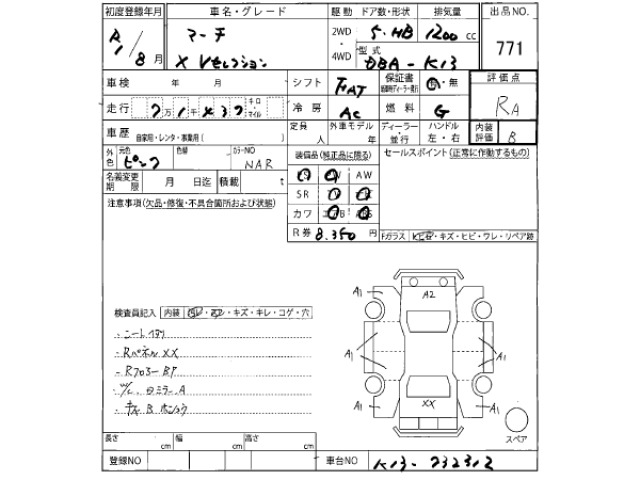 初度登録年月 車名・グレード 駆動 ドア数・形状 排気量 出品NO.
1/8月 マーチ 2WD 5.HB 1200cc 771
X Vセレクション ・4WD 型式 DBA-K13
車検 年 月 シフト FAT 保証書 有・無 評価点
走行 キロ・マイル 冷房 AC 燃料 G RA
車歴 自家用・レンタ・事業用( ) 定員 人 外車モデル 年 ディーラー・並行 ハンドル 左・右 内装評価 B
外色 元色 ピンク 色替 カラーNO NAR 装備品(純正品に限る) セールスポイント(正常に作動するもの)
名義変更期限 月 日迄 積載 t PS PW AW
注意事項(欠品・修復・不具合箇所および状態) SR TV
カワ エアB ABS
R券 8.350円 Fガラス トビ石・キズ・ヒビ・ワレ・リペア跡
A1 A2 A1
検査員記入 内装 ・キズ・キレ・コゲ・穴
・シートヨゴレ
・RパネルXX
A1 A1
・RフロアーBP
A
XX
A1 A1
スペア
長さ cm 幅 cm 高さ cm
登録NO 車台NO K13-732312